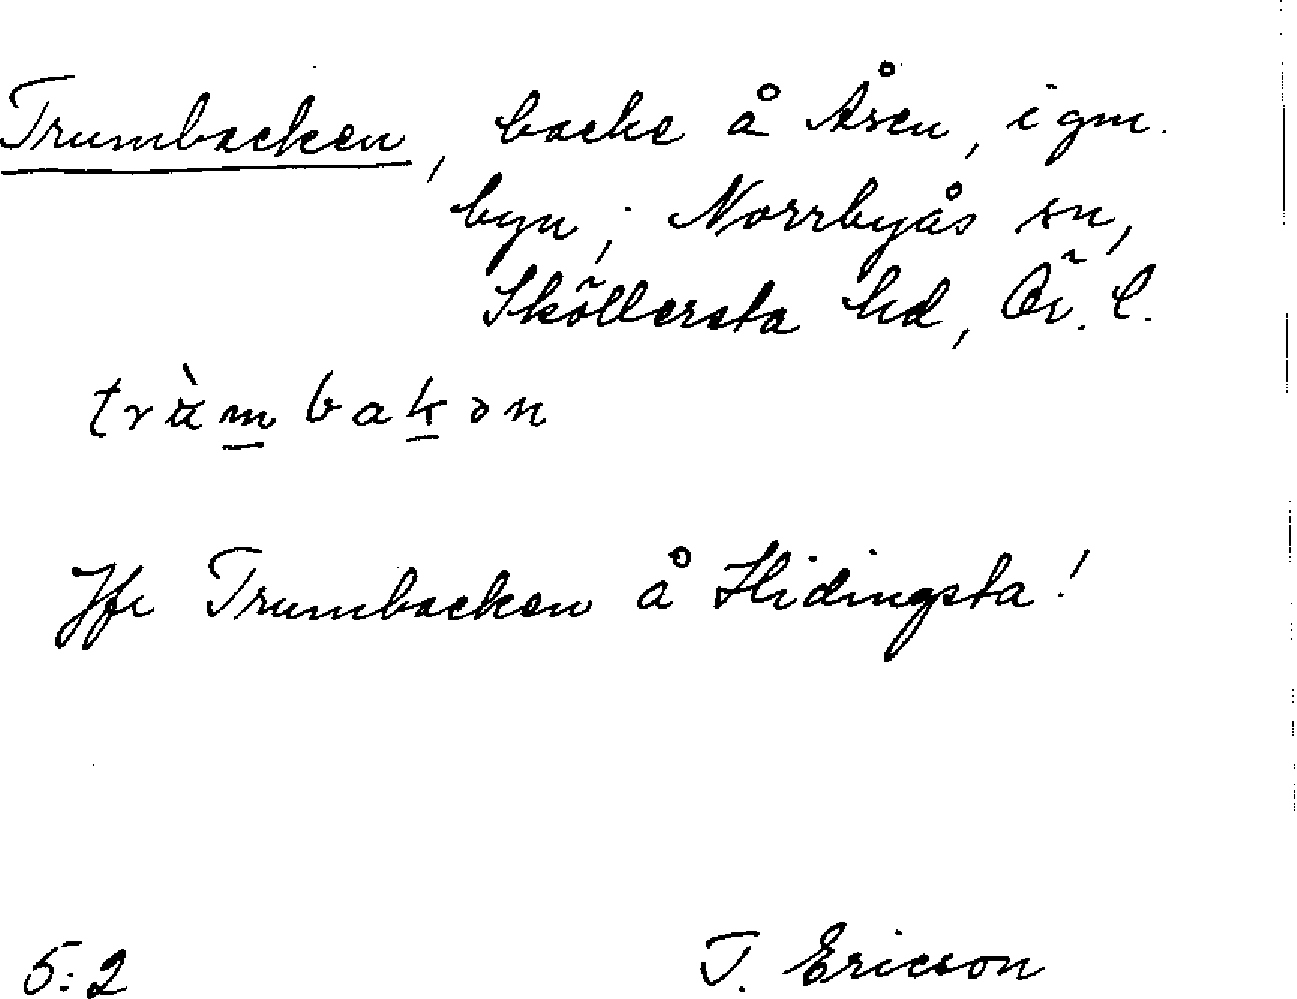 Trumbacken, backe å Åsen, i gm.
byn, Norrbyås sn,
Sköllersta hd, Ör. l.
trùmbakən
Jfr Trumbacken å Hidingsta!
5:2 T. Ericson